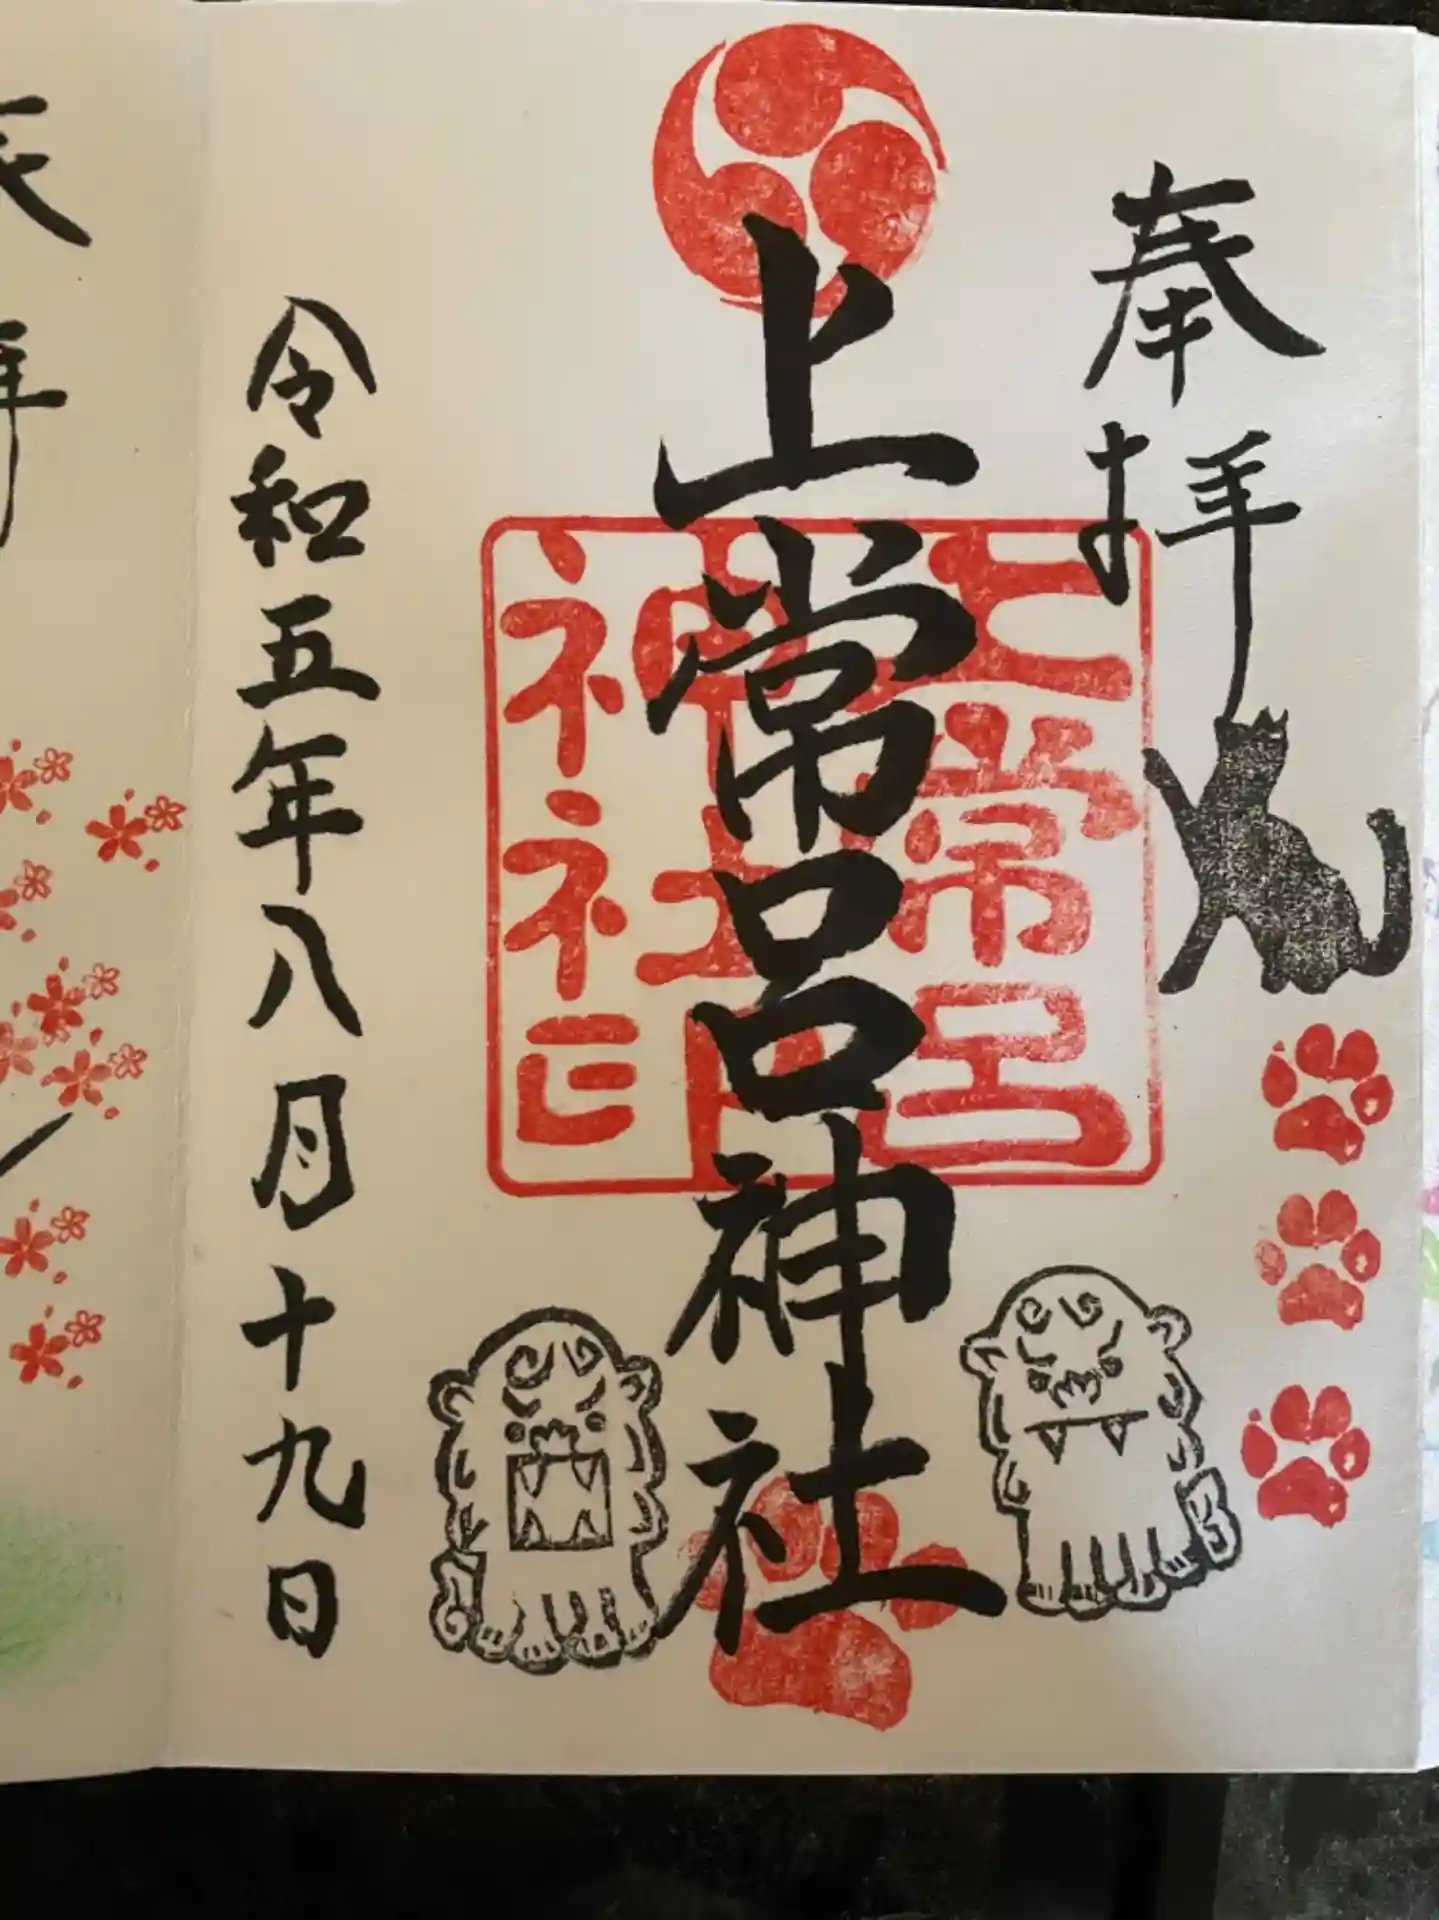 奉拝
上常呂神社
上常呂
神社
令和五年八月十九日
拝